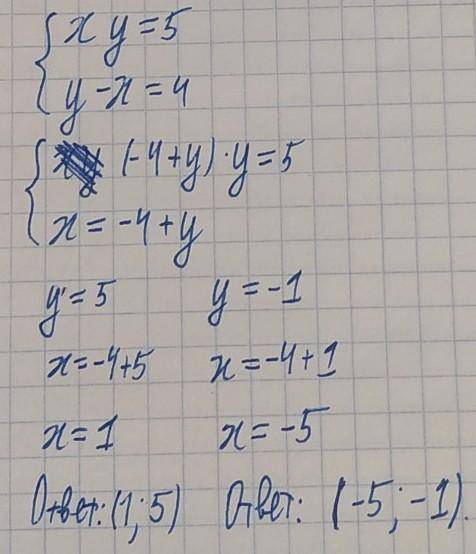 x y = 5
y - x = 4
(-4+y)·y = 5
x = -4 + y
y = 5 y = -1
x = -4+5 x = -4+1
x = 1 x = -5
Ответ: (1; 5) Ответ: (-5; -1).